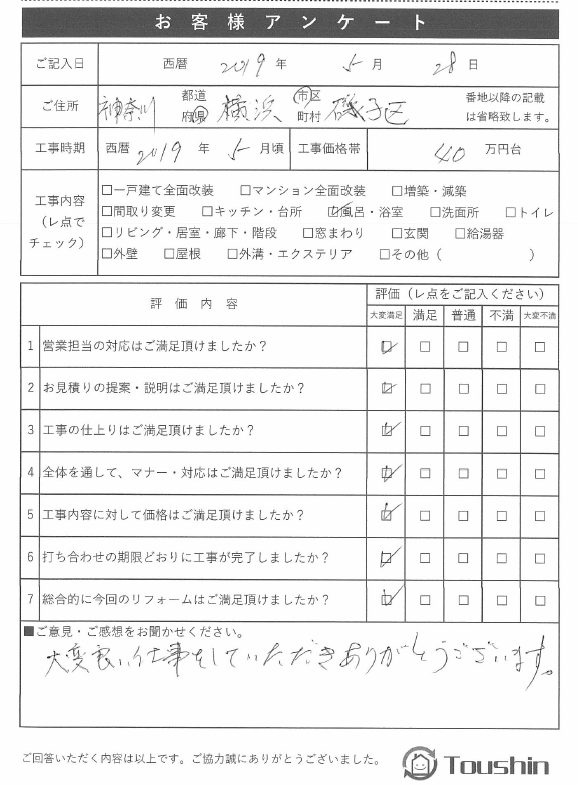 お客様アンケート
ご記入日 西暦 2019 年 5 月 28 日
ご住所 神奈川 都道府県 横浜 市区町村 磯子区 番地以降の記載は省略致します。
工事時期 西暦 2019 年 5 月頃 工事価格帯 40 万円台
工事内容（レ点でチェック）
□一戸建て全面改装 □マンション全面改装 □増築・減築
□間取り変更 □キッチン・台所 ☑風呂・浴室 □洗面所 □トイレ
□リビング・居室・廊下・階段 □窓まわり □玄関 □給湯器
□外壁 □屋根 □外溝・エクステリア □その他（ ）
評価内容 評価（レ点をご記入ください）
大変満足 満足 普通 不満 大変不満
1 営業担当の対応はご満足頂けましたか？ ☑ □ □ □ □
2 お見積りの提案・説明はご満足頂けましたか？ ☑ □ □ □ □
3 工事の仕上りはご満足頂けましたか？ ☑ □ □ □ □
4 全体を通して、マナー・対応はご満足頂けましたか？ ☑ □ □ □ □
5 工事内容に対して価格はご満足頂けましたか？ ☑ □ □ □ □
6 打ち合わせの期限どおりに工事が完了しましたか？ ☑ □ □ □ □
7 総合的に今回のリフォームはご満足頂けましたか？ ☑ □ □ □ □
■ご意見・ご感想をお聞かせください。
大変良い仕事をしていただきありがとうございます。
ご回答いただく内容は以上です。ご協力誠にありがとうございました。 Toushin